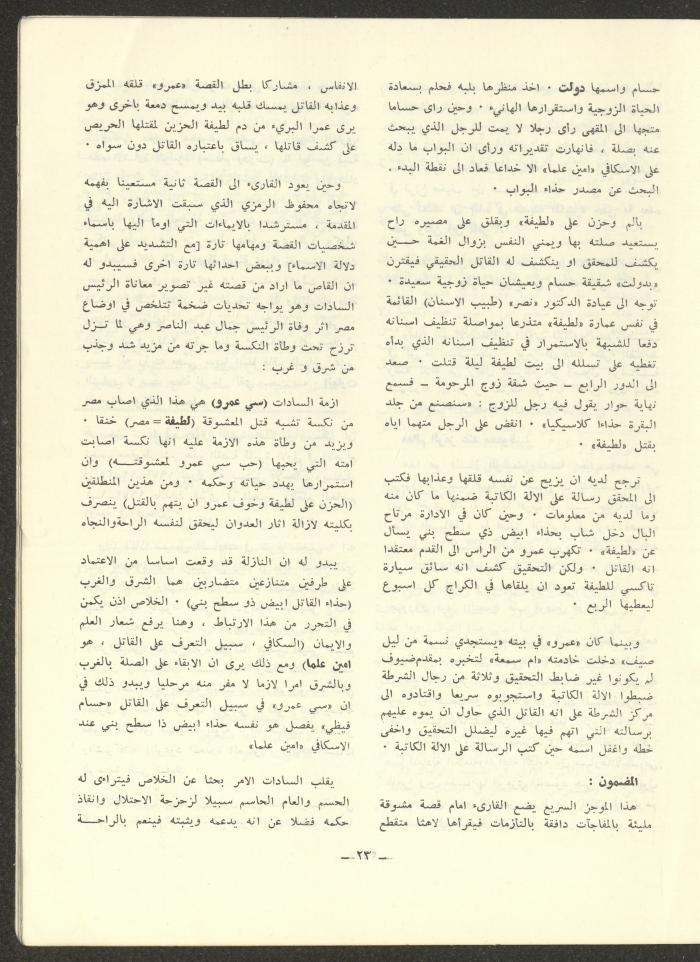 حسام واسمها دولت ٠ اخذ منظرها بلبه فحلم بسعادة
الحياة الزوجية واستقرارها الهانيء ٠ وحين راى حساما
متجها الى المقهى رأى رجلا لا يمت للرجل الذي يبحث
عنه بصلة ، فانهارت تقديراته ورأى ان البواب ما دله
على الاسكافي «امين علما» الا خداعا فعاد الى نقطة البدء ،
البحث عن مصدر حذاء البواب ٠
بالم وحزن على «لطيفة» وبقلق على مصيره راح
يستعيد صلته بها ويمني النفس بزوال الغمة حــين
يكشف للمحقق او ينكشف له القاتل الحقيقي فيقترن
«بدولت» شقيقة حسام ويعيشان حياة زوجية سعيدة ٠
توجه الى عيادة الدكتور «نصر» (طبيب الاسنان) القائمة
في نفس عمارة «لطيفة» متذرعا بمواصلة تنظيف اسنانه
دفعا للشبهة بالاستمرار في تنظيف اسنانه الذي بداه
تغطيه على تسلله الى بيت لطيفة ليلة قتلت ٠ صعد
الى الدور الرابع ــ حيث شقة زوج المرحومة ــ فسمع
نهاية حوار يقول فيه رجل للزوج : «سنصنع من جلد
البقرة حذاءا كلاسيكيا» ٠ انقض على الرجل متهما اياه
بقتل «لطيفة» ٠
ترجح لديه ان يزيح عن نفسه قلقها وعذابها فكتب
الى المحقق رسالة على الالة الكاتبة ضمنها ما كان منه
وما لديه من معلومات ٠ وحين كان في الادارة مرتاح
البال دخل شاب بحذاء ابيض ذي سطح بني يسأل
عن «لطيفة» ٠ تكهرب عمرو من الراس الى القدم معتقدا
انه القاتل ٠ ولكن التحقيق كشف انه سائق سيارة
تاكسي للطيفة تعود ان يلقاها في الكراج كل اسبوع
ليعطيها الريع ٠
وبينما كان «عمرو» في بيته «يستجدي نسمة من ليل
صيف» دخلت خادمته «ام سمعة» لتخبره بمقدم ضيوف
لم يكونوا غير ضابط التحقيق وثلاثة من رجال الشرطة
ضبطوا الالة الكاتبة واستجوبوه سريعا واقتادوه الى
مركز الشرطة على انه القاتل الذي حاول ان يموه عليهم
برسالته التي اتهم فيها غيره ليضلل التحقيق واخفى
خطه واغفل اسمه حين كتب الرسالة على الالة الكاتبة ٠
المضمون :
هذا الموجز السريع يضع القارىء امام قصة مشوقة
مليئة بالمفاجآت دافقة بالتازمات فيقرأها لاهثا متقطع
الانفاس ، مشاركا بطل القصة «عمرو» قلقه الممزق
وعذابه القاتل يمسك قلبه بيد ويمسح دمعة باخرى وهو
يرى عمرا البريء من دم لطيفة الحزين لمقتلها الحريص
على كشف قاتلها ، يساق باعتباره القاتل دون سواه ٠
وحين يعود القارىء الى القصة ثانية مستعينا بفهمه
لاتجاه محفوظ الرمزي الذي سبقت الاشارة اليه في
المقدمة ، مسترشدا بالايماءات التي اومأ اليها باسماء
شخصيات القصة ومهامها تارة [مع التشديد على اهمية
دلالة الاسماء] وببعض احداثها تارة اخرى فسيبدو له
ان القاص ما اراد من قصته غير تصوير معاناة الرئيس
السادات وهو يواجه تحديات ضخمة تتلخص في اوضاع
مصر اثر وفاة الرئيس جمال عبد الناصر وهي لما تــزل
ترزح تحت وطأة النكسة وما جرته من مزيد شد وجذب
من شرق و غرب :
ازمة السادات (سي عمرو) هي هذا الذي اصاب مصر
من نكسة تشبه قتل المعشوقة (لطيفة = مصر) خنقا ٠
ويزيد من وطأة هذه الازمة عليه انها نكسة اصابت
امته التي يحبها (حب سي عمرو لمعشوقتــه) وان
استمرارها يهدد حياته وحكمه ٠ ومن هذين المنطلقين
(الحزن على لطيفة وخوف عمرو ان يتهم بالقتل) ينصرف
بكليته لازالة اثار العدوان ليحقق لنفسه الراحة والنجاه
يبدو له ان النازلة قد وقعت اساسا من الاعتماد
على طرفين متنازعين متضاربين هما الشرق والغرب
(حذاء القاتل ابيض ذو سطح بني) ٠ الخلاص اذن يكمن
في التحرر من هذا الارتباط ، وهنا يرفع شعار العلم
والايمان (السكافي ، سبيل التعرف على القاتل ، هو
امين علما) ومع ذلك يرى ان الابقاء على الصلة بالغرب
وبالشرق امرا لازما لا مفر منه مرحليا ويبدو ذلك في
ان «سي عمرو» في سبيل التعرف على القاتل «حسام
فيظي» يفصل هو نفسه حذاء ابيض ذا سطح بني عند
الاسكافي «امين علما»
يقلب السادات الامر بحثا عن الخلاص فيتراءى له
الحسم والعام الحاسم سبيلا لزحزحة الاحتلال وانقاذ
حكمه فضلا عن انه يدعمه ويثبته فينعم بالراحــة
ــ ٢٣ ــ